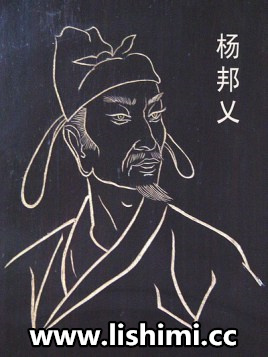 杨邦乂
www.lishimi.cc